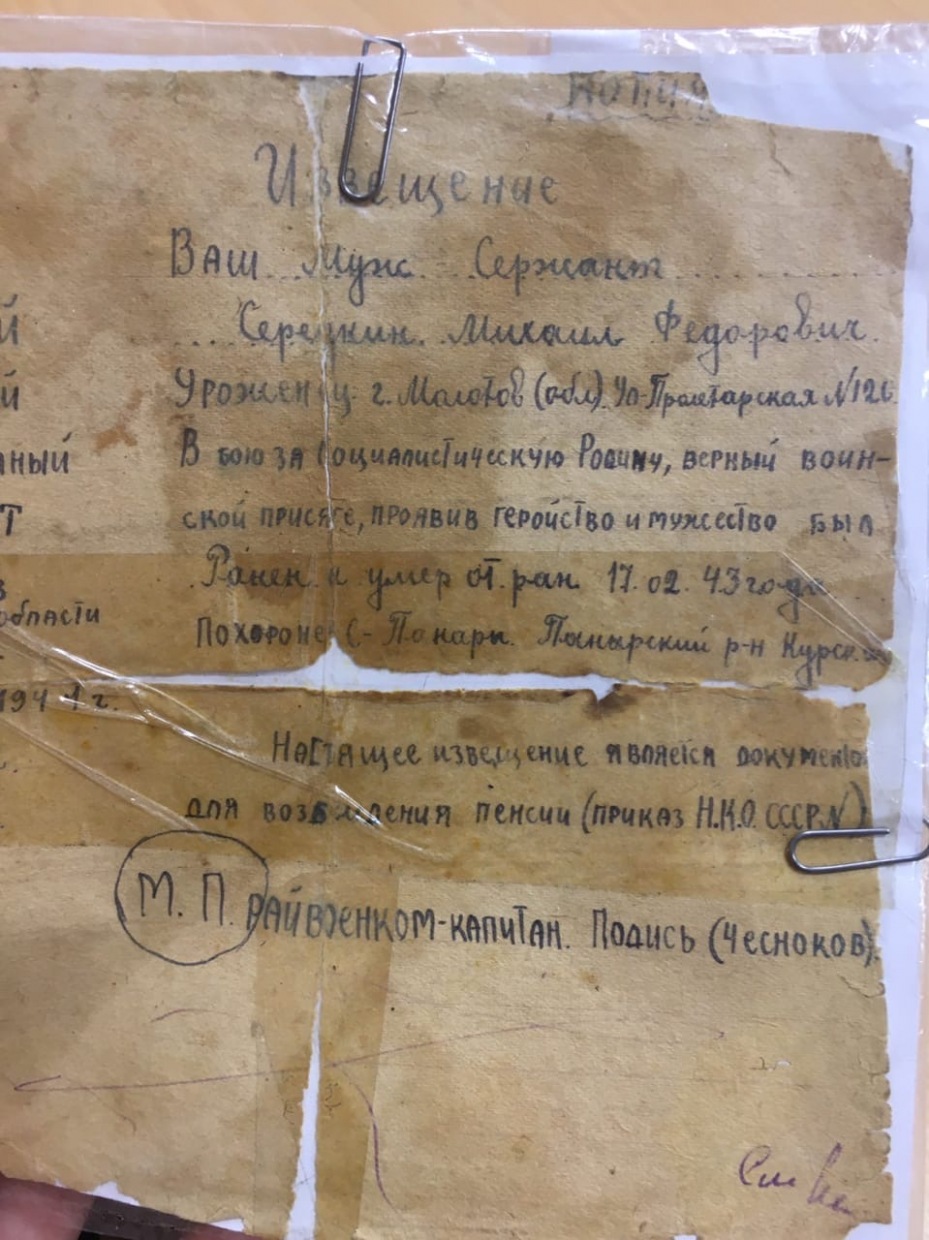 КОПИЯ
Извещение
Ваш Муж Сержант
й
Михаил Федорович.
й
Уроженец г. Молотов (обл). Ул. Пролетарская №126
нный
В бою за Социалистическую Родину, верный воин-
Т
ской присяге, проявив геройство и мужество был
Ранен и умер от ран 17.02.43 года
области
Похороне С-Понары. Понырский р-н Курск
1941 г.
Настящее извещение является документо
для возб дения пенсии (приказ Н.К.О. СССР.N)
М.П. Райвоенком-капитан. Подись (Чесноков).
См